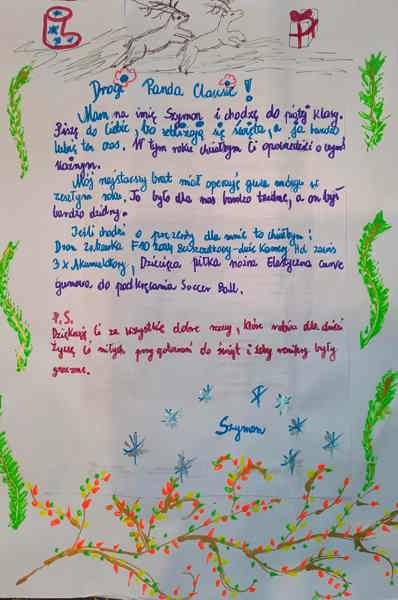 Drogi Panda Clausie!
Mam na imię Szymon i chodzę do piątej klasy.
Piszę do Ciebie, bo zbliżają się święta, a ja bardzo
lubię ten czas. W tym roku chciałbym Ci opowiedzieć o czymś
ważnym.
Mój najstarszy brat miał operację guza mózgu w
zeszłym roku. To było dla nas bardzo trudne, a on był
bardzo dzielny.
Jeśli chodzi o prezenty dla mnie to chciałbym:
Dron Zabawka F10 Szary Bezszczotkowy - dwie Kamery Hd zawis
3x Akumulatory, Dziecięca piłka nożna Elastyczna
gumowa do podkręcania Soccer Ball.
P.S.
Dziękuję Ci za wszystkie dobre rzeczy, które robisz dla dzieci
Życzę Ci miłych przygotowań do świąt i żeby renifery były
grzeczne.
Szymon